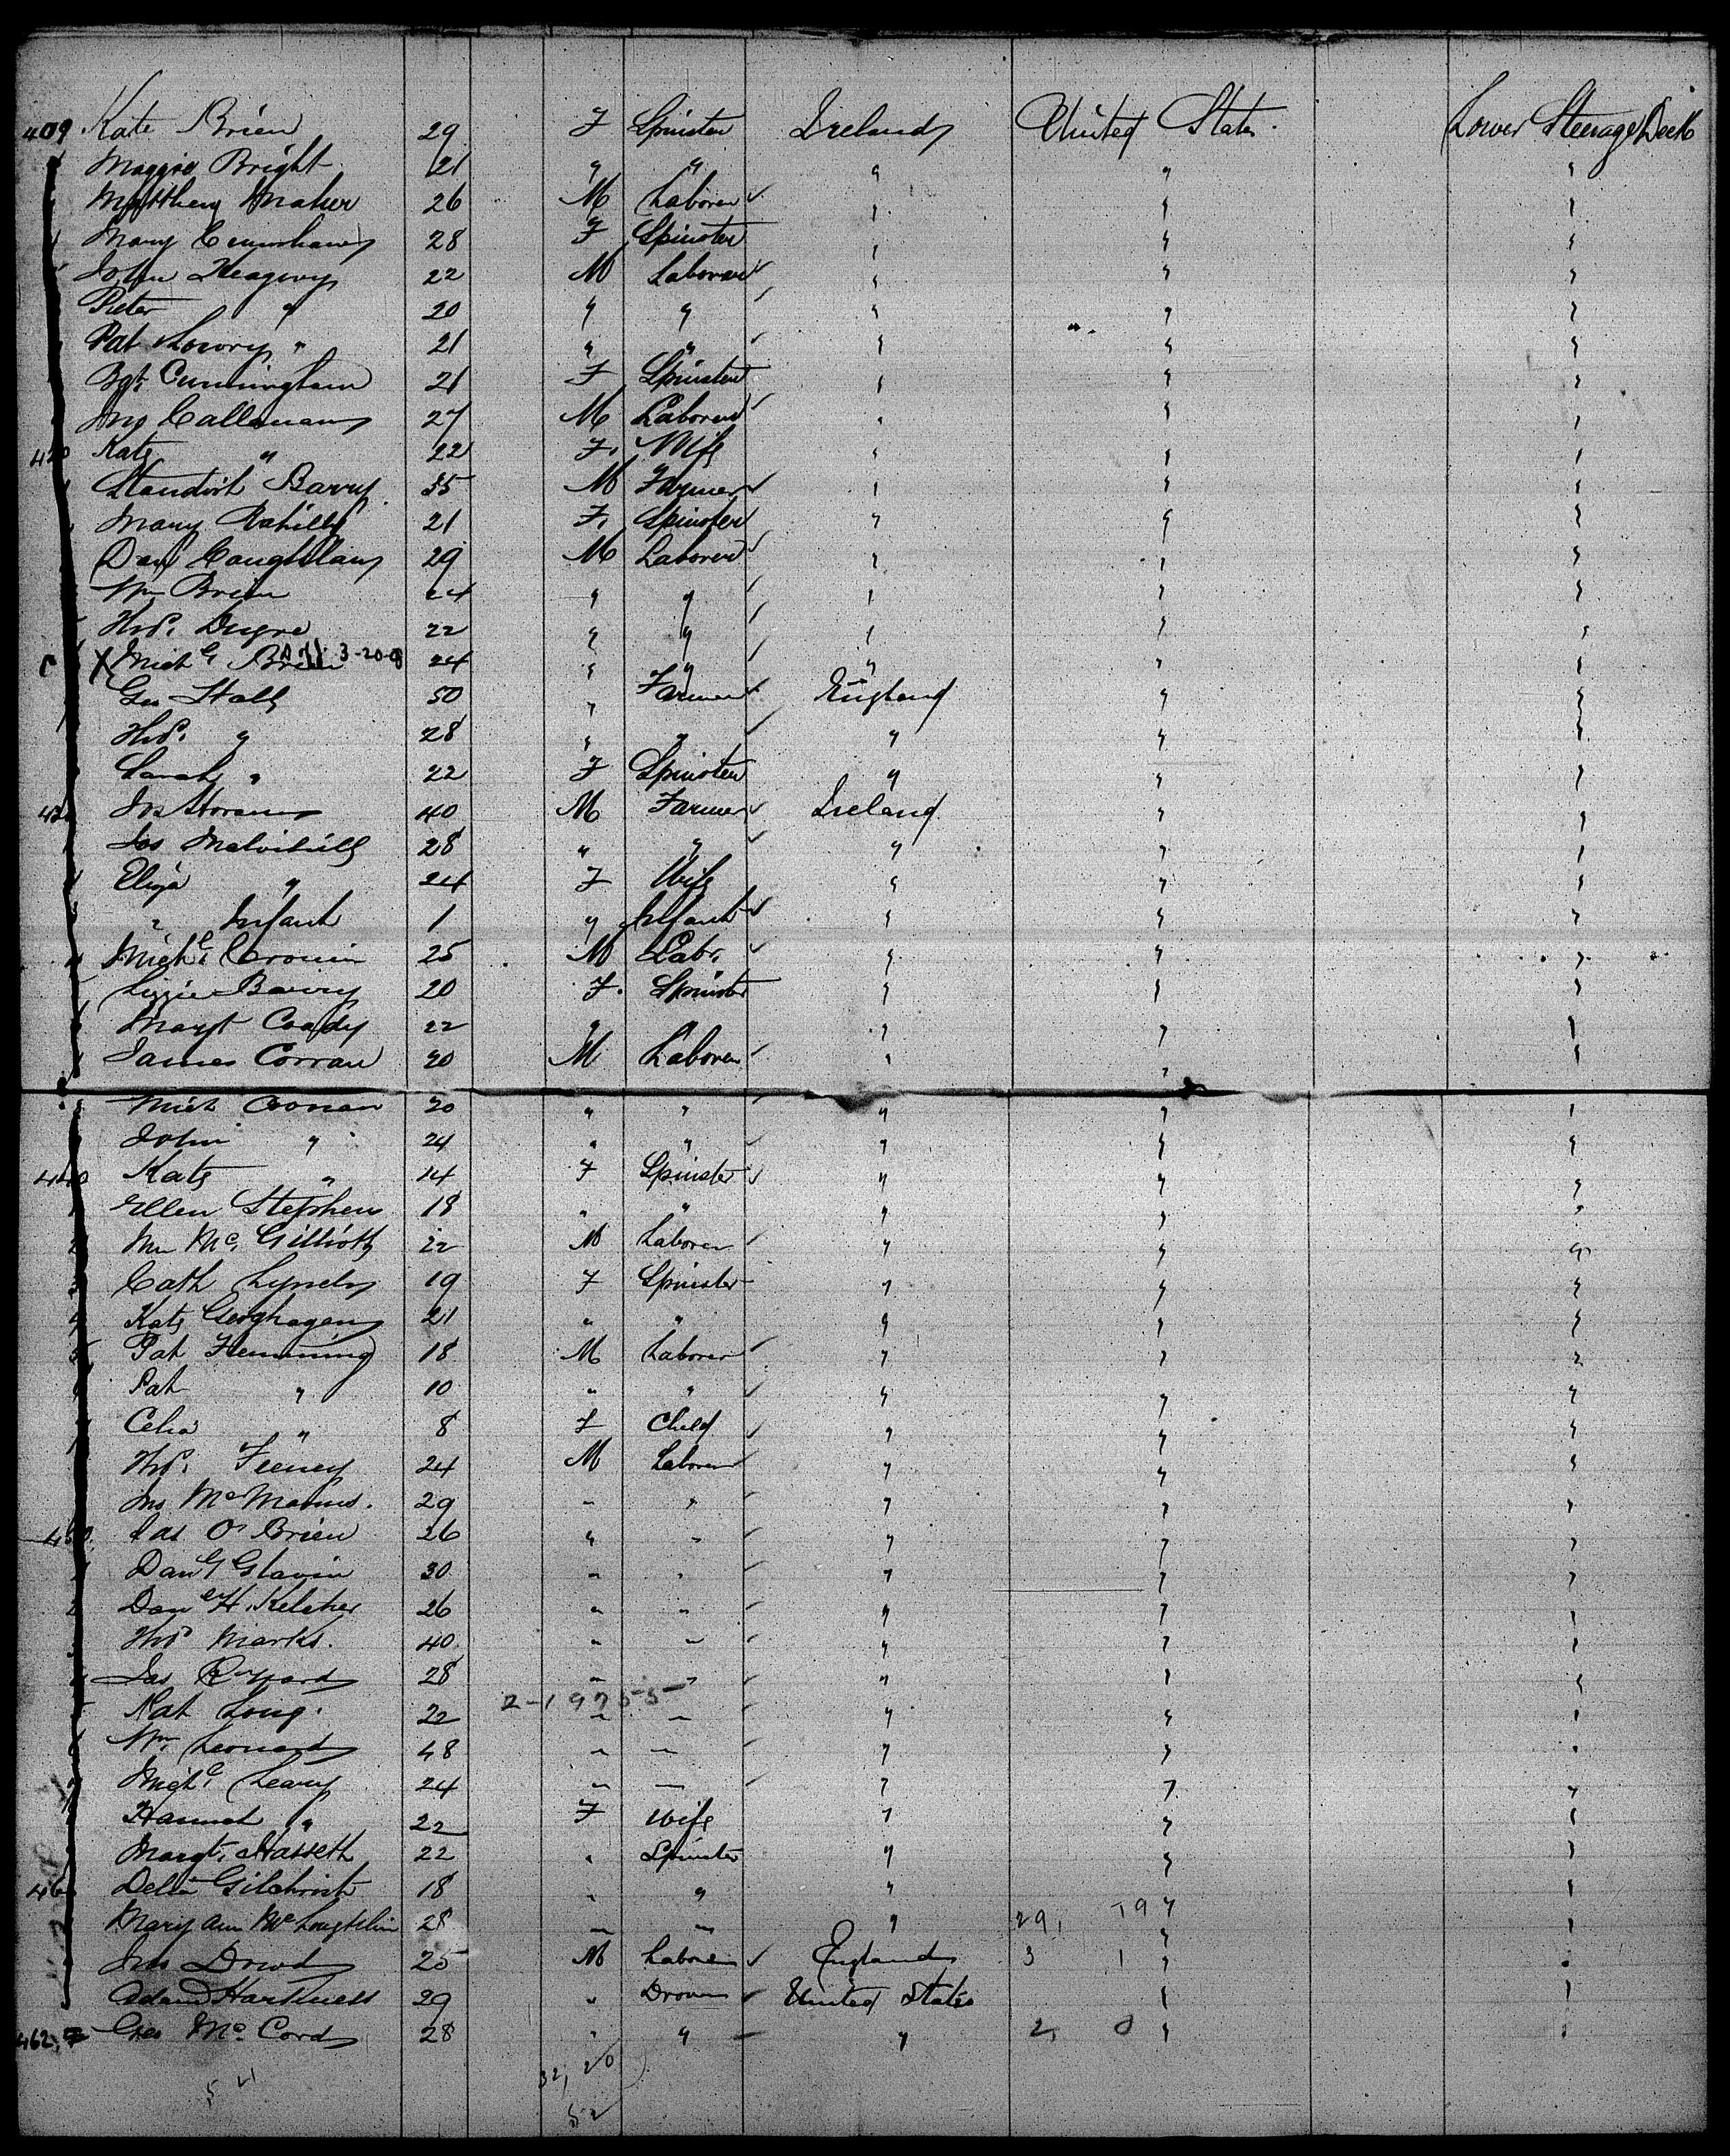 409 Kate Brien 29 F Spinster Ireland United States Lower Steerage Deck
Maggie Bright 21 " " " " "
Matthew Maher 26 M Laborer " " "
Mary 28 F Spinster " " "
John 22 M Laborer " " "
Peter " 20 " " " " "
Pat Lowry " 21 " " " " "
Bgt Cunningham 21 F Spinster " " "
Jno Callanan 27 M Laborer " " "
420 Kate " 22 F. Wife " " "
Standish Barry 35 M Farmer " " "
Mary Rahilly 21 F. Spinster " " "
Dan Coughlan 29 M Laborer " " "
Wm Brien 24 " " " " "
Thos. 22 " " " " "
X Michl Brien 3-20-0 24 " " " " "
Geo Hall 50 " Farmer England " "
Thos. " 28 " " " " "
Sarah " 22 F Spinster " " "
Jas Horan 40 M Farmer Ireland " "
Jas Melvihill 28 " " " " "
Eliza " 24 F Wife " " "
" Infant 1 " Infant " " "
Michl Cronin 25 M Labr. " " "
Lizzie Barry 20 F. Spinster " " "
Margt Coady 22 " " " "
James Corran 20 M Laborer " " "
Mich Conan 20 " " " " "
John " 24 " " " " "
440 Kate " 14 F Spinster " " "
1 Ellen Stephens 18 " " " " "
2 Wm Mc 22 M Laborer " " "
3 Cath Lynch 19 F Spinster " " "
4 Kate Geoghagen 21 " " " " "
5 Pat Flemming 18 M Laborer " " "
Pat " 10 " " " " "
Celia " 8 F Child " " "
Thos. Feeney 24 M Laborer " " "
Jno McManus. 29 " " " " "
450 Jas O'Brien 26 " " " " "
Danl Glavin 30 " " " " "
2 Danl H. Keleher 26 " " " " "
Thos Marks. 40 " " " " "
Jas 28 " " " " "
Pat Long. 22 2-19755 " " " " "
Wm. Leonard 48 " " " " "
Michl Leary 24 " " " " "
Hannah " 22 F Wife " " "
Margt. Hassett 22 " Spinster " " "
460 Delia Gilchrist 18 " " " " "
Mary Ann McLoughlin 28 " " " 29, 19 " "
Jno Dowd 25 M Laborer England 3 1 " "
Adam Harkness 29 " Drover United States " "
462, Geo McCord 28 " " " 2, 0 " "
32, 20
52